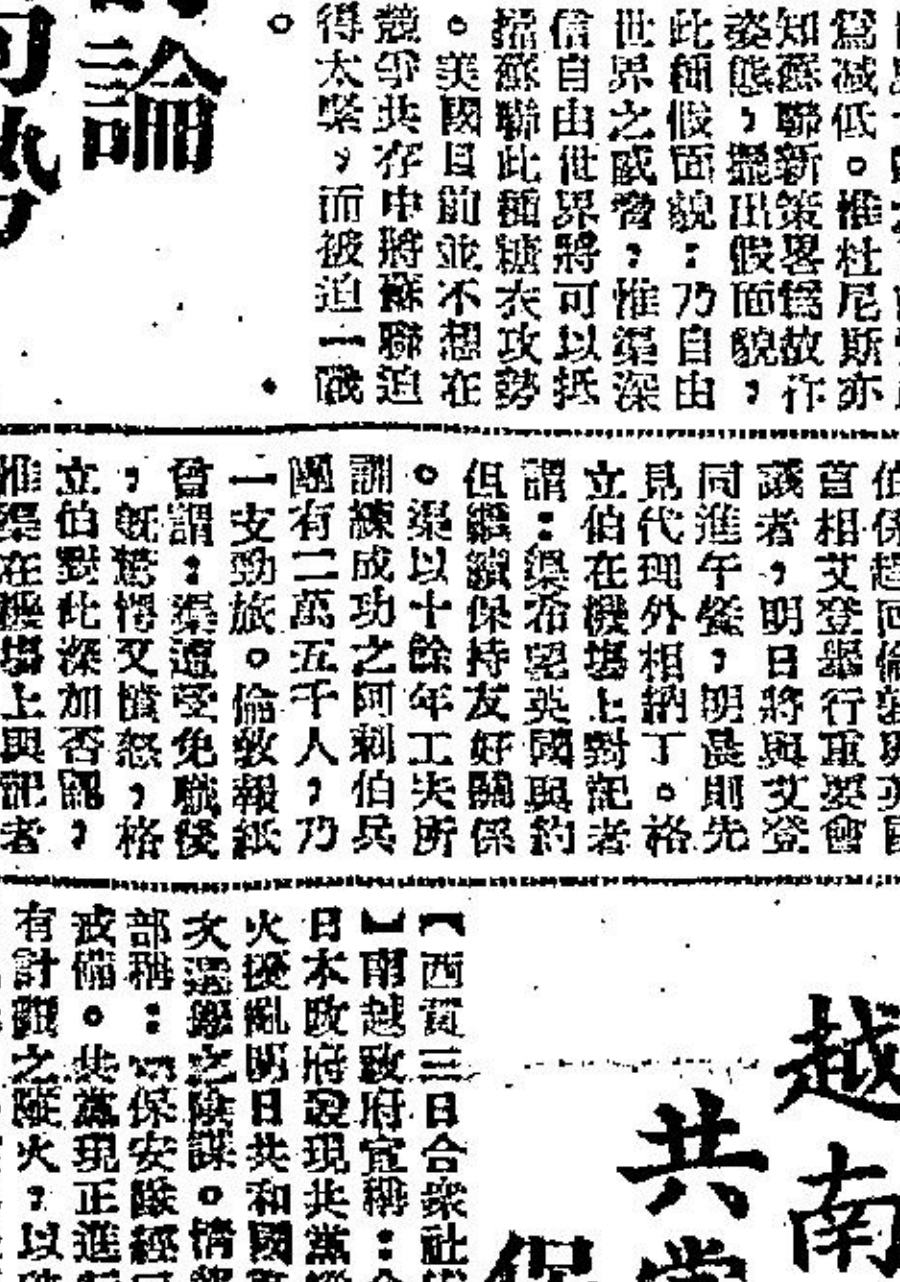 爲减低。惟杜尼斯亦
知蘇聯新策畧爲故作
姿態，擺出假面貌，
此種假面貌：乃自由
世界之威脅，惟渠深
信自由世界將可以抵
擋蘇聯此種糖衣攻勢
。美國目前並不想在
競爭共存中將蘇聯迫
得太緊，而被迫一戰
。
論
勢
首相艾登舉行重要會
議者，明日將與艾登
同進午餐，明晨則先
見代理外相納丁。格
立伯在機塲上對記者
謂：渠希望英國與約
但繼續保持友好關係
。渠以十餘年工夫所
訓練成功之阿剌伯兵
團有二萬五千人，乃
一支勁旅。倫敦報紙
曾謂：渠遭受免職後
，旣驚愕又憤怒，格
立伯對此深加否認，
惟渠在機塲上與記者
越南
共黨
保
【西貢三日合衆社
】南越政府宣稱：
日本政府發現共黨
火擾亂明日共和國
次選舉之陰謀。情
部稱：保安隊經
戒備。共黨現正進
有計劃之縱火，以